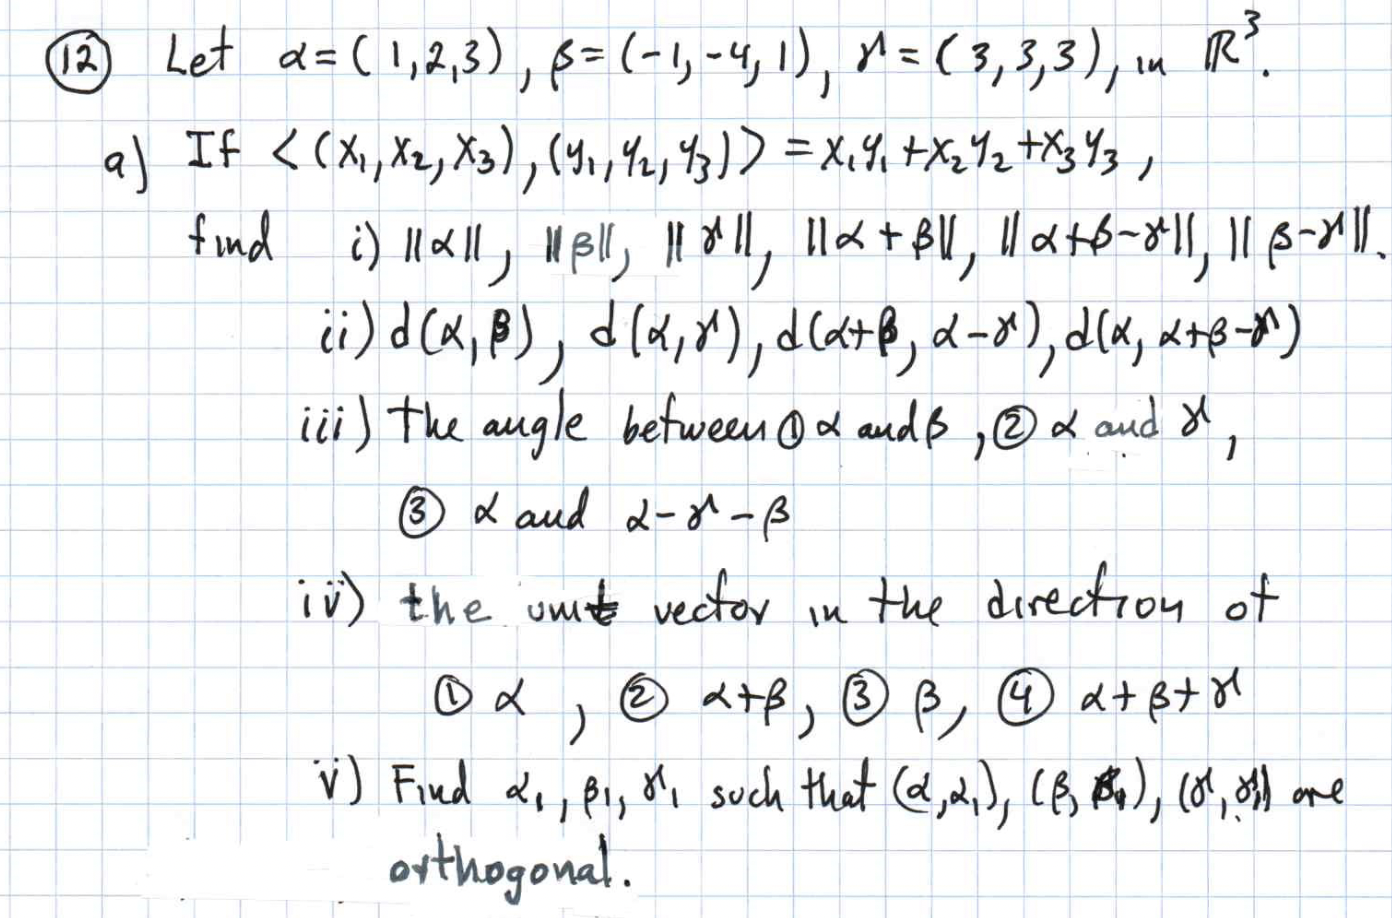 ⑫ Let α=(1,2,3), β=(-1,-4,1), γ=(3,3,3), in ℝ³.
a) If <(x₁,x₂,x₃),(y₁,y₂,y₃)> = x₁y₁+x₂y₂+x₃y₃,
find i) ||α||, ||β||, ||γ||, ||α+β||, ||α+β-γ||, ||β-γ||.
ii) d(α,β), d(α,γ), d(α+β, α-γ), d(α, α+β-γ)
iii) the angle between ① α and β, ② α and γ,
③ α and α-γ-β
iv) the unit vector in the direction of
① α, ② α+β, ③ β, ④ α+β+γ
v) Find α₁, β₁, γ₁ such that (α,α₁), (β,β₁), (γ,γ₁) are
orthogonal.